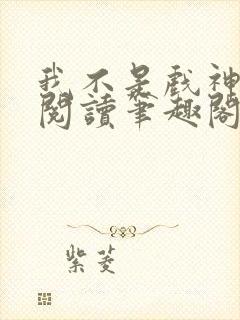 我不是戲神
閱讀筆趣閣
紫菱